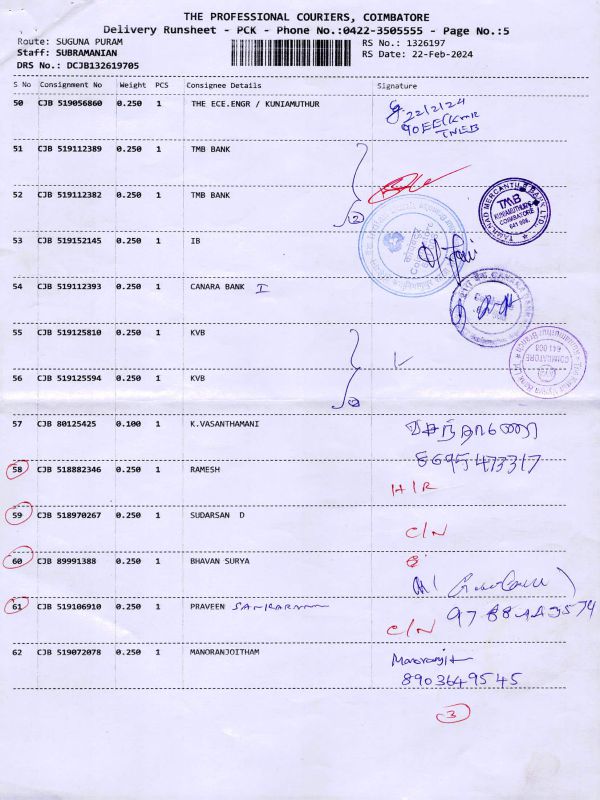 THE PROFESSIONAL COURIERS, COIMBATORE
Delivery Runsheet - PCK - Phone No.:0422-3505555 - Page No.:5
Route: SUGUNA PURAM RS No.: 1326197
Staff: SUBRAMANIAN RS Date: 22-Feb-2024
DRS No.: DCJB132619705
S No Consignment No Weight PCS Consignee Details Signature
50 CJB 519056860 0.250 1 THE ECE.ENGR / KUNIAMUTHUR
22/2/24
TNEB
51 CJB 519112389 0.250 1 TMB BANK
52 CJB 519112382 0.250 1 TMB BANK
2
TAMILNAD MERCANTILE BANK LTD.
TMB
KUNIAMUTHUR
COIMBATORE
641 008.
53 CJB 519152145 0.250 1 IB
54 CJB 519112393 0.250 1 CANARA BANK I
55 CJB 519125810 0.250 1 KVB
56 CJB 519125594 0.250 1 KVB
COIMBATORE
641 008
57 CJB 80125425 0.100 1 K.VASANTHAMANI
8695473317
58 CJB 518882346 0.250 1 RAMESH
H/R
59 CJB 518970267 0.250 1 SUDARSAN D
C/N
60 CJB 89991388 0.250 1 BHAVAN SURYA
61 CJB 519106910 0.250 1 PRAVEEN
C/N
62 CJB 519072078 0.250 1 MANORANJOITHAM
Manoranjit
8903649545
3